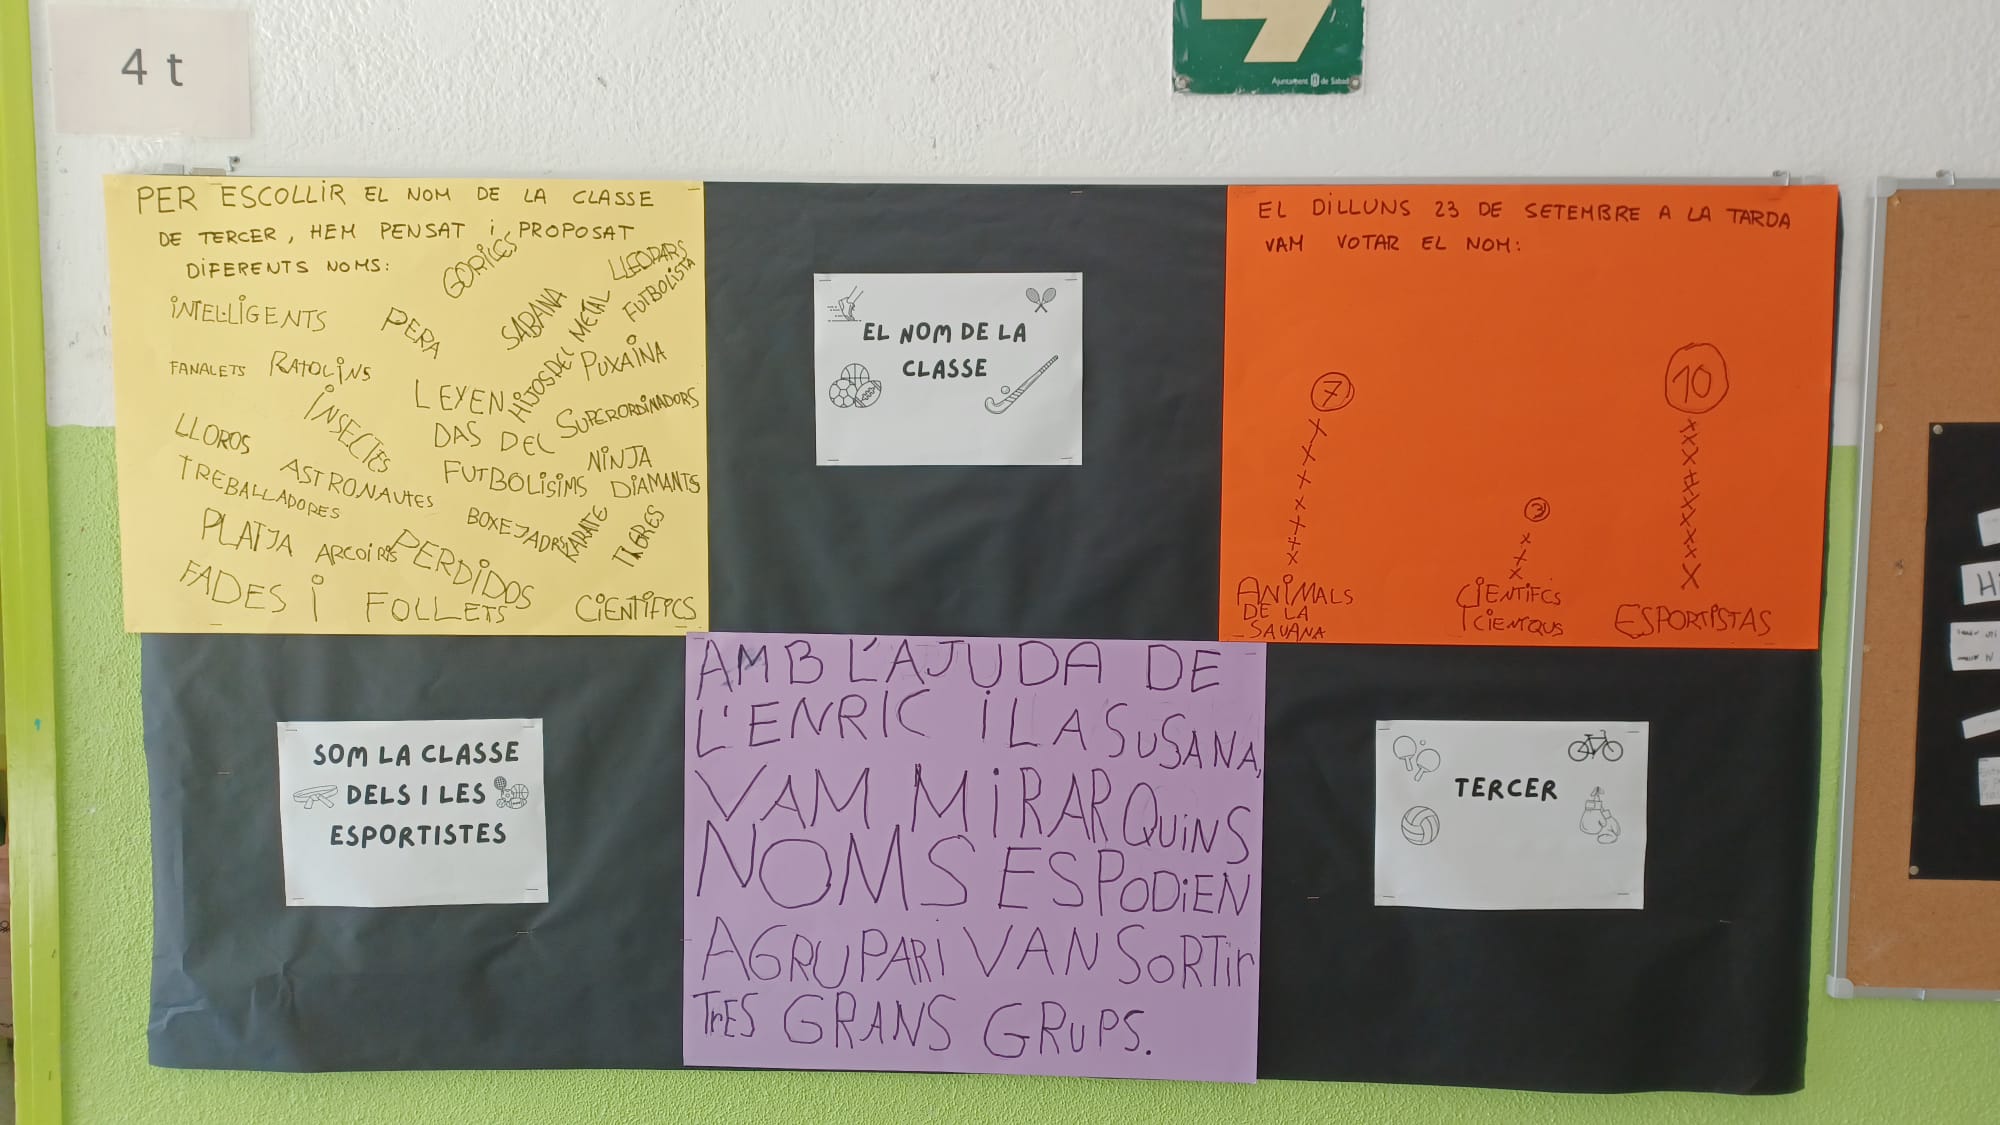 4 t
Ajuntament de Sabad
PER ESCOLLIR EL NOM DE LA CLASSE
DE TERCER, HEM PENSAT i PROPOSAT
DIFERENTS NOMS:
GORIL·LES
LLEOPARS
INTEL·LIGENTS
PERA
SABANA
HIJOS DEL METAL
FUTBOLISTA
FANALETS
RATOLINS
PUXAINA
INSECTES
LEYEN
DAS DEL
FUTBOLISIMS
SUPERORDINADORS
LLOROS
ASTRONAUTES
NINJA
DIAMANTS
TREBALLADORES
BOXEJADRS
KARATE
TIGRES
PLATJA
ARCOIRIS
PERDIDOS
FADES i FOLLETS
CIENTIFICS
EL NOM DE LA
CLASSE
EL DILLUNS 23 DE SETEMBRE A LA TARDA
VAM VOTAR EL NOM:
7
3
10
ANIMALS
DE LA
SAVANA
CIENTIFCS
I CIENTQUS
ESPORTISTAS
SOM LA CLASSE
DELS I LES
ESPORTISTES
AMB L'AJUDA DE
L'ENRIC I LA SUSANA,
VAM MIRAR QUINS
NOMS ES PODIEN
AGRUPAR I VAN SORTIR
TRES GRANS GRUPS.
TERCER